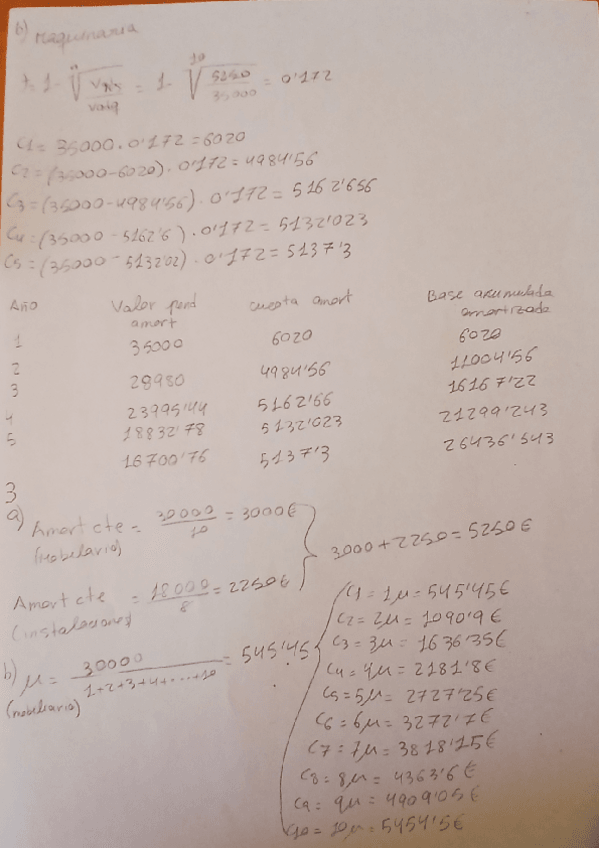 b) Maquinaria
t = 1 - ⁿ√(VNr / VAdq) = 1 - ¹⁰√(5250 / 35000) = 0'172
C1 = 35000 . 0'172 = 6020
C2 = (35000-6020) . 0'172 = 4984'56
C3 = (35000-4984'56) . 0'172 = 5162'656
C4 = (35000 - 5162'6 ) . 0'172 = 5132'023
C5 = (35000 - 5132'02) . 0'172 = 5137'3
Año Valor pend amort cuota amort Base acumulada amortizada
1 35000 6020 6020
2 28980 4984'56 11004'56
3 23995'44 5162'66 16167'22
4 18832'78 5132'023 21299'243
5 16700'76 5137'3 26436'543
3
a) Amort cte = 30000 / 10 = 3000€
(mobiliario)
3000 + 2250 = 5250€
Amort cte = 18000 / 8 = 2250€
(instalaciones)
b) μ = 30000 / 1+2+3+4+...+10 = 545'45
(mobiliario)
C1 = 1μ = 545'45€
C2 = 2μ = 1090'9€
C3 = 3μ = 1636'35€
C4 = 4μ = 2181'8€
C5 = 5μ = 2727'25€
C6 = 6μ = 3272'7€
C7 = 7μ = 3818'15€
C8 = 8μ = 4363'6€
C9 = 9μ = 4909'05€
C10 = 10μ = 5454'5€